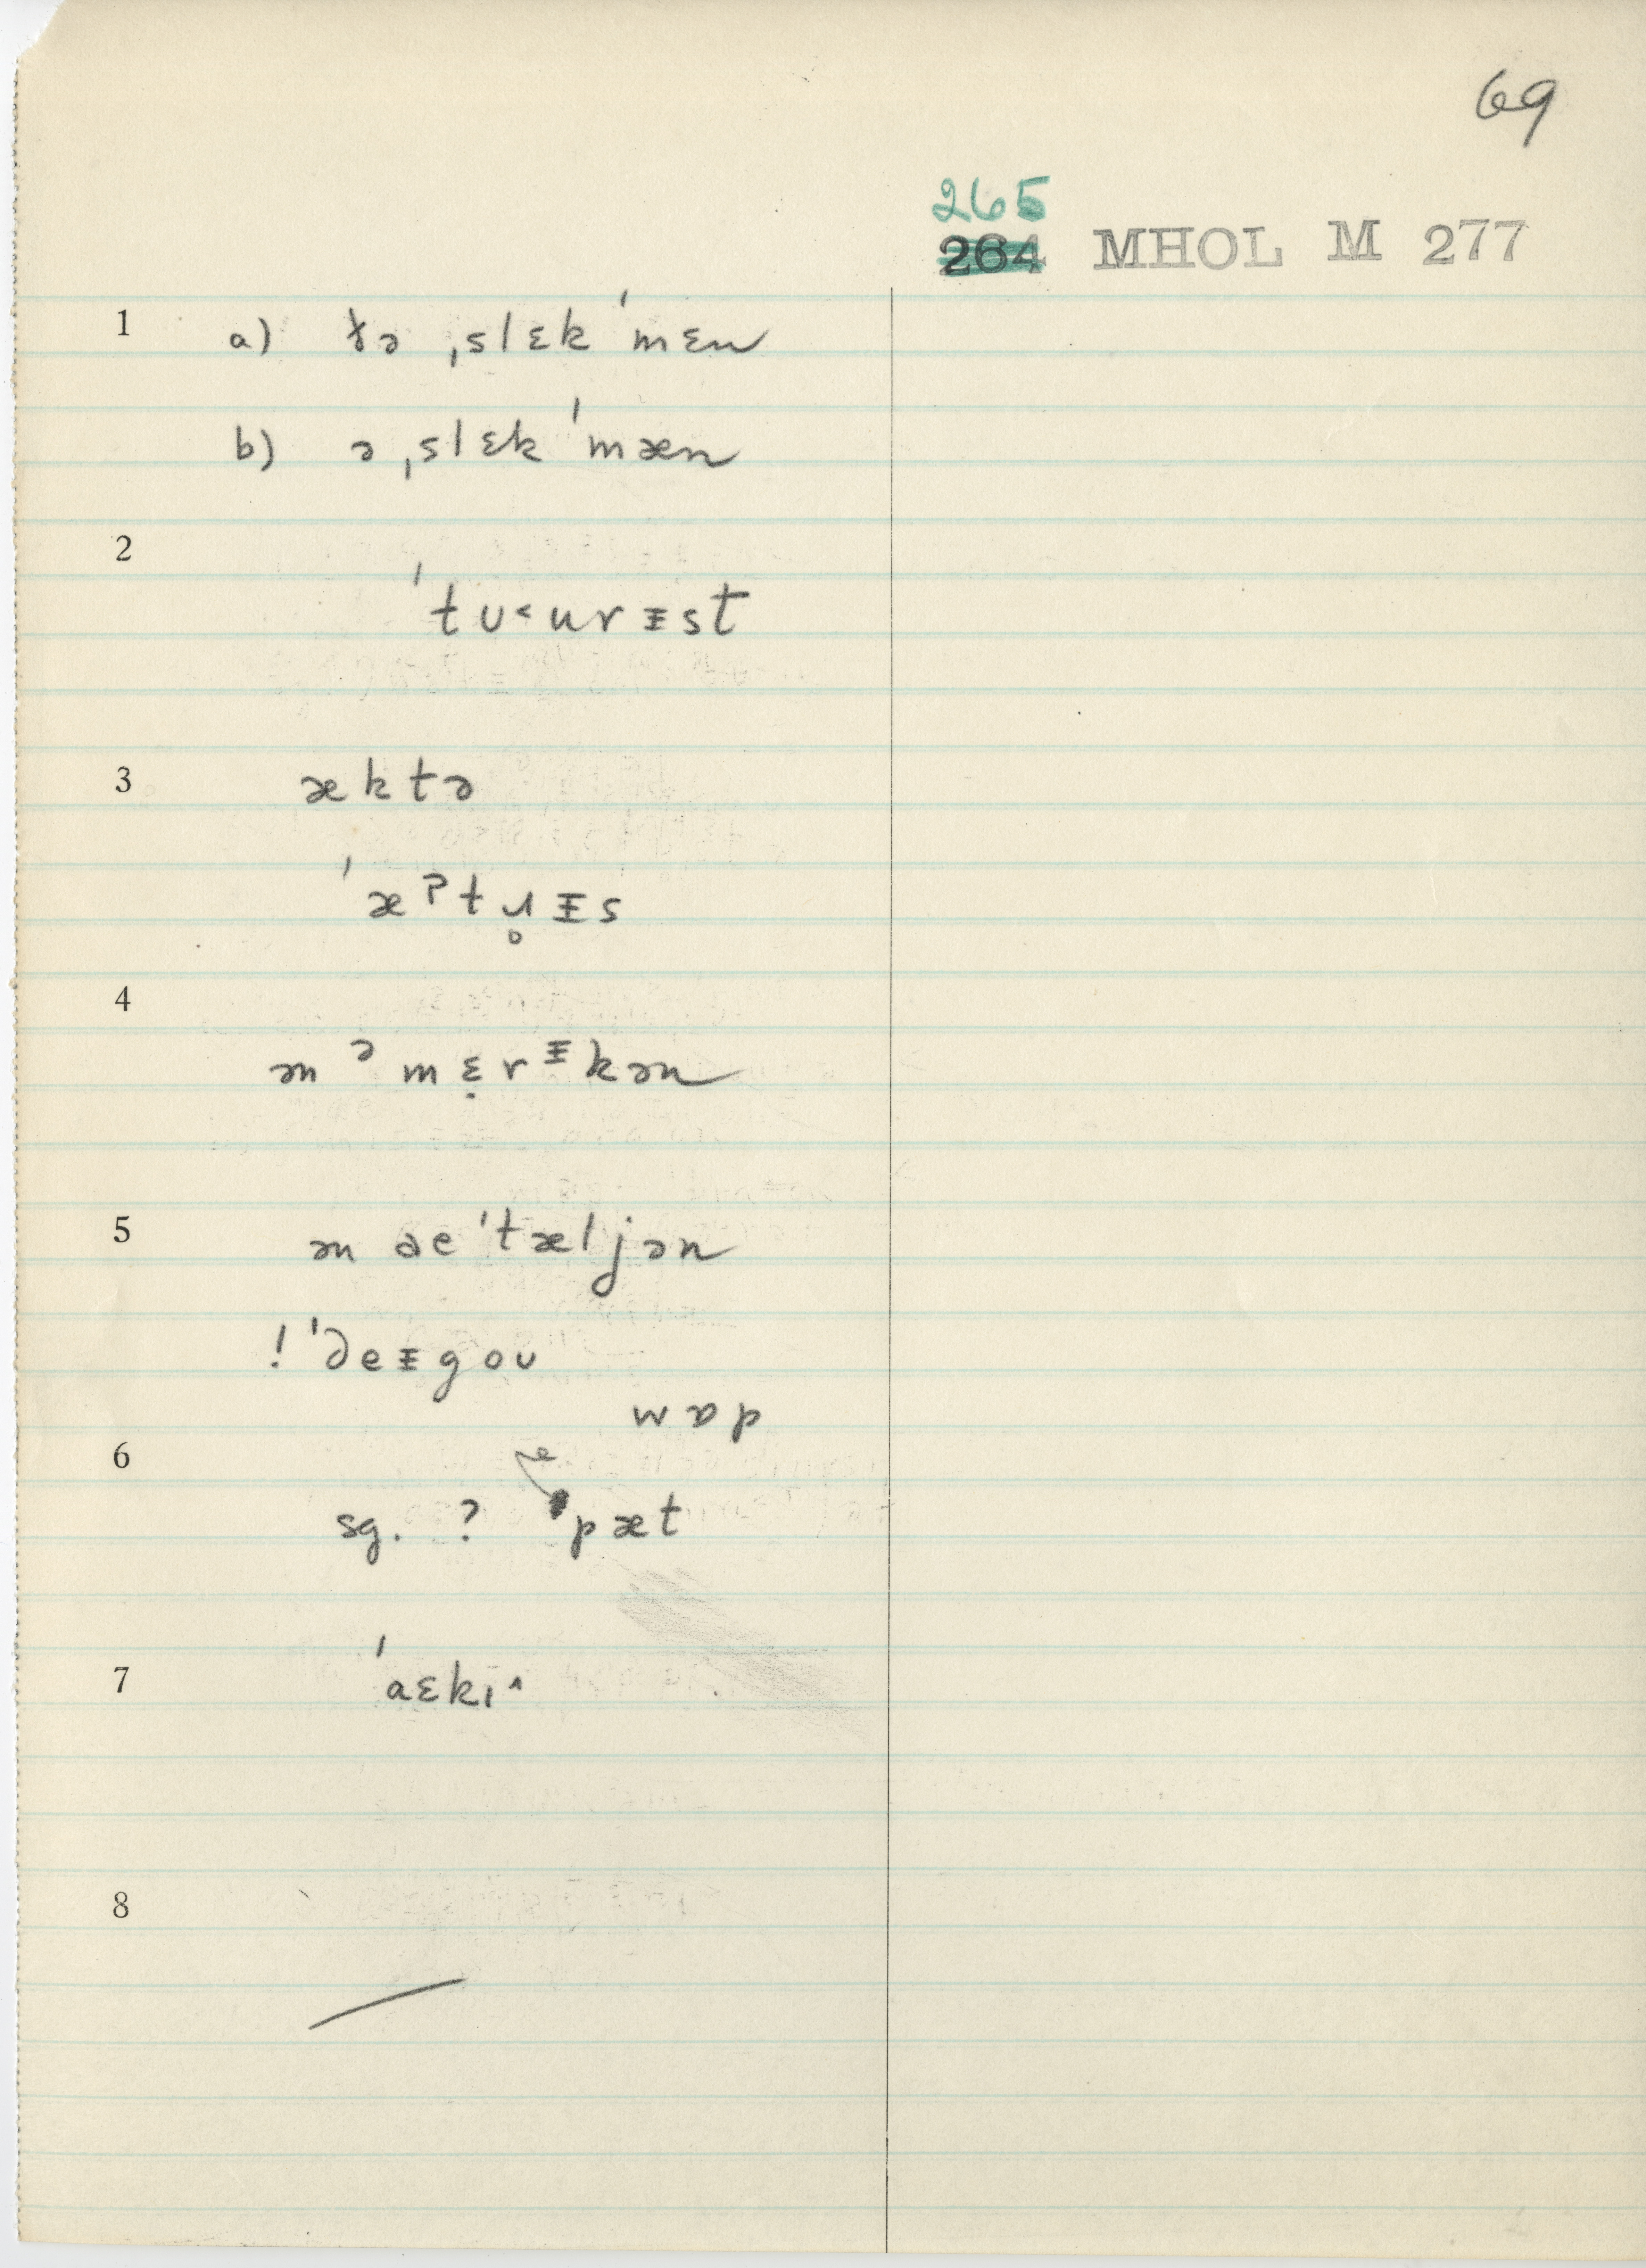 69
265
264 MHOL M 277
1 a) ðə ˌslɛk ˈmɛn
b) ə ˌslɛk ˈmæn
2
ˈtʊ˂urᵻst
3 æktə
ˈæʔtɹ̥ᵻs
4
ən ᵊmɛ̣rᵻkən
5 ən aeˈtæljən
! ˈdeᵻgoʊ
wap
6
sg. ? pæt
7 ˈaɛkɪ˄
8